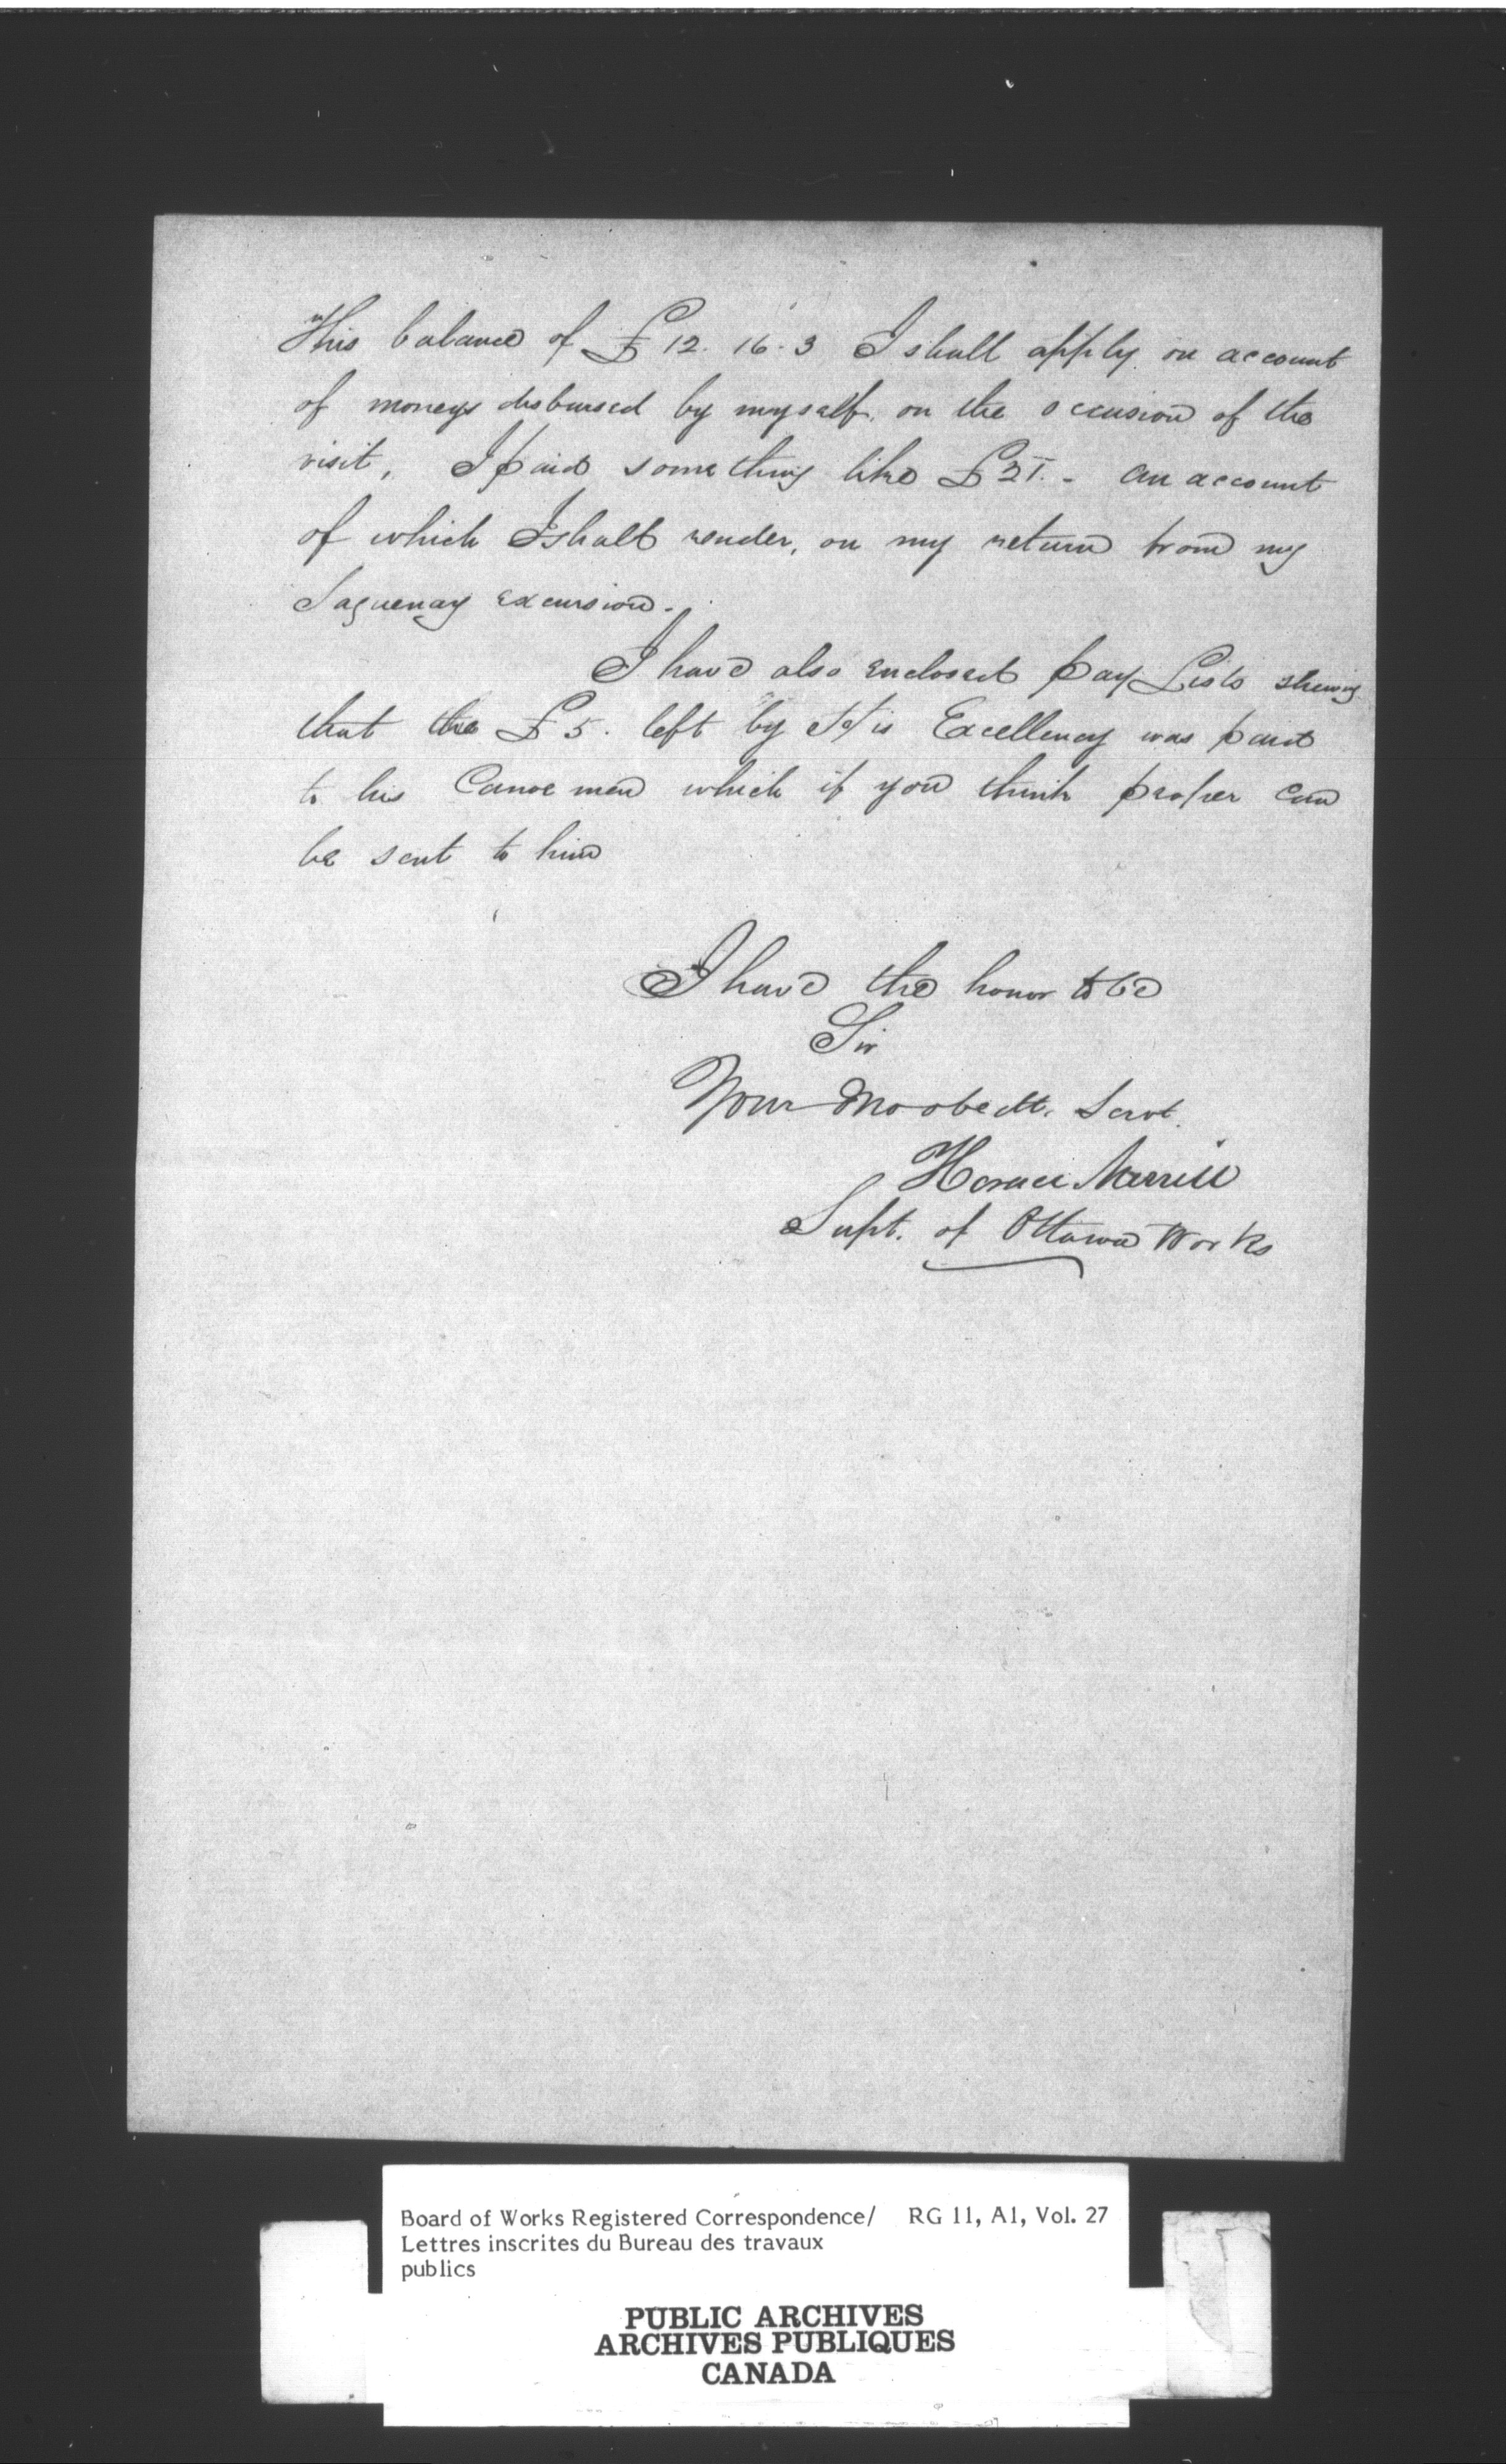 This balance of £12. 16. 3 I shall apply on account
of moneys disbursed by myself, on the occasion of the
visit, I paid something like £21. - An account
of which I shall render, on my return from my
Saguenay excursion.
I have also enclosed pay Lists shewing
that the £5. left by His Excellency was paid
to his Canoe men which if you think proper can
be sent to him
I have the honor to be
Sir
Your Mo obedt. Servt.
Horace Merrill
Supt. of Ottawa Works
Board of Works Registered Correspondence/ RG 11, A1, Vol. 27
Lettres inscrites du Bureau des travaux
publics
PUBLIC ARCHIVES
ARCHIVES PUBLIQUES
CANADA